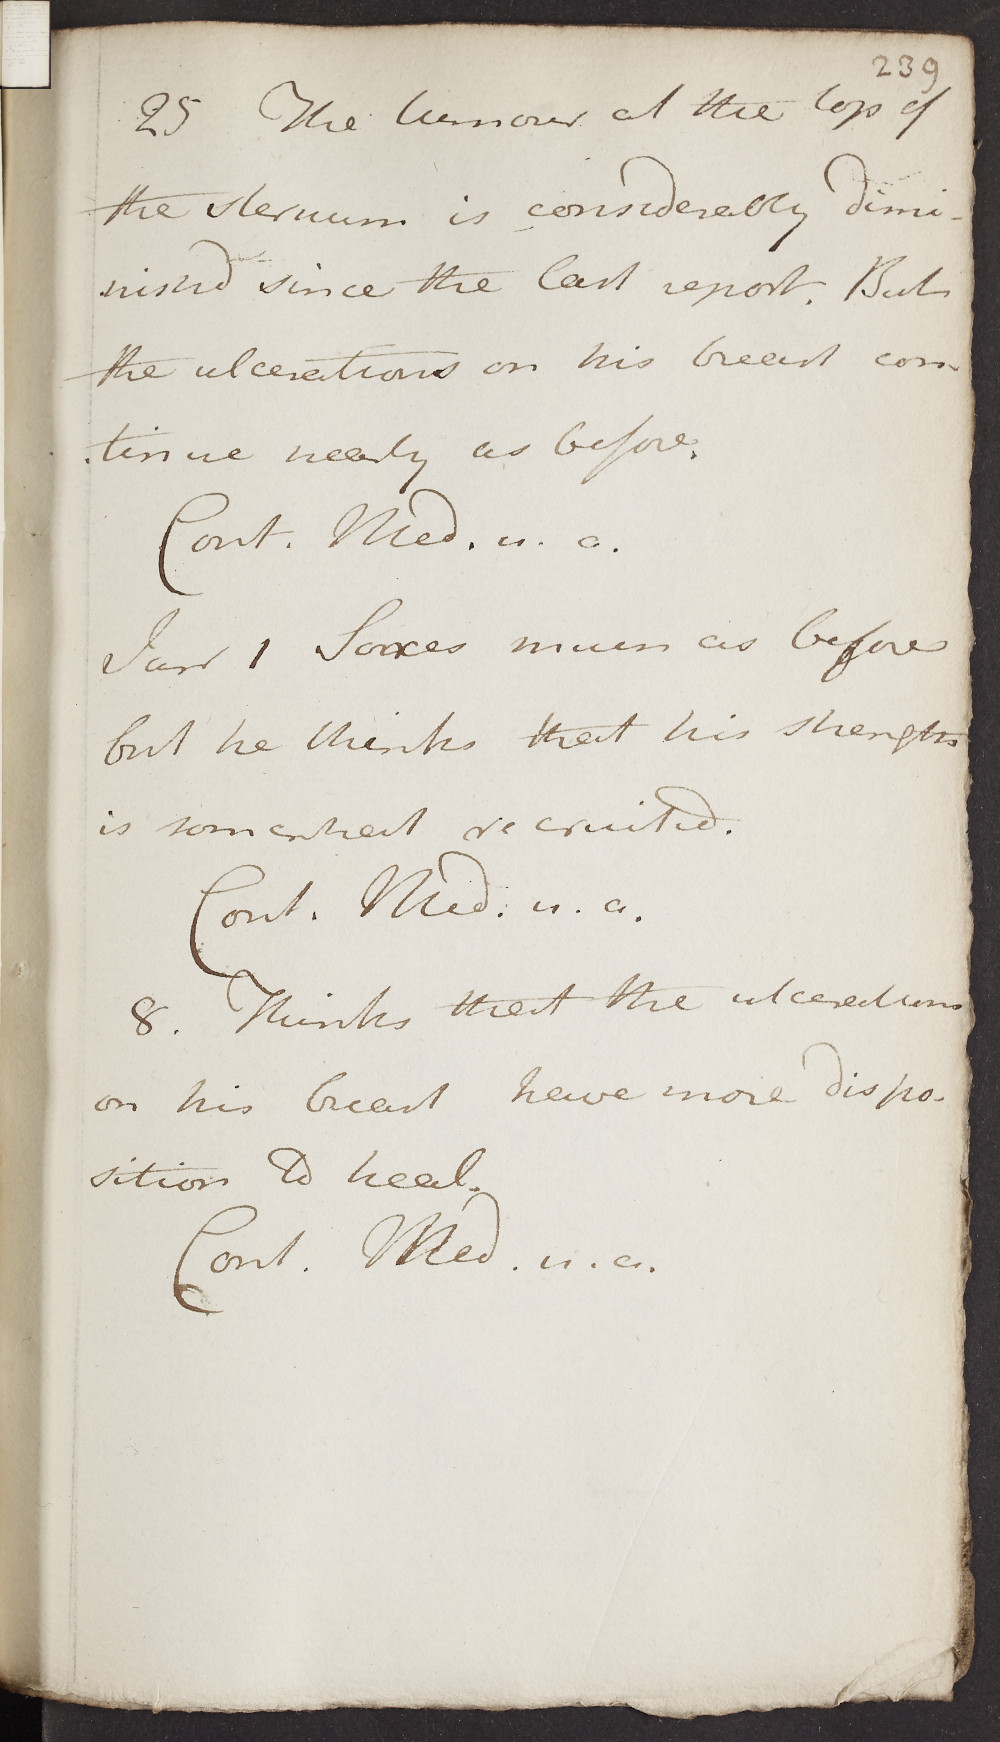 239
25 The tumour at the top of
the sternum is considerably dimi-
nishd since the last report. But
the ulcerations on his breast con-
tinue nearly as before.
Cont. Med. u. a.
Janr 1 Sores much as before
but he thinks that his strength
is somewhat recruited.
Cont. Med. u. a.
8. Thinks that the ulcerations
on his breast have more dispo-
sition to heal.
Cont. Med. u. a.